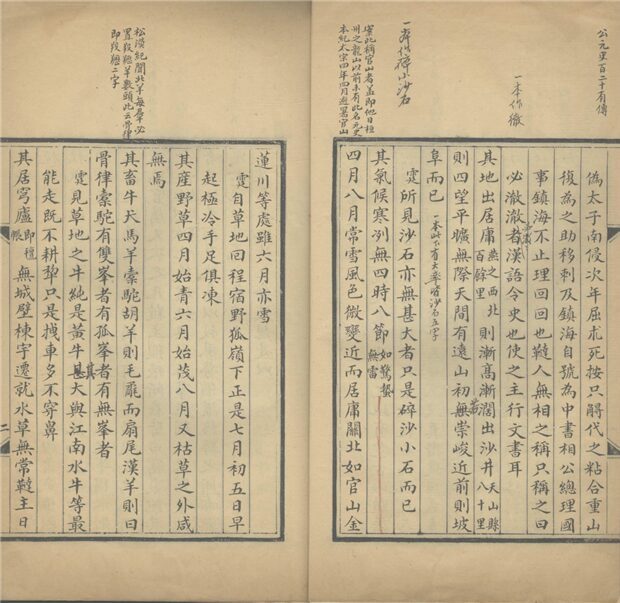 公元里百二十有傳
一本作徹
一本作碎小沙石
案此稱官山者蓋即他日桓
州之龍山以前未有此名元史
本紀太宗四年四月避暑官山
偽太子南侵次年屈朮死按只䚟代之粘合重山
復為之助移剌及鎮海自號為中書相公總理國
事鎮海不止理回回也韃人無相之稱只稱之曰
必澈澈者漢語令史也使之主行文書耳
其地出居庸燕之西北百餘里則漸高漸濶出沙井天山縣八十里
則四望平曠無際天間有遠山初若無崇峻近前則坡
阜而已一本此下有大率皆沙石五字
霆所見沙石亦無甚大者只是碎沙小石而已
其氣候寒冽無四時八節如驚蟄無雷
四月八月常雪風色微變近而居庸關北如官山金
松漠紀聞北羊每羣必
置羖䍽羊數頭此云骨律
即羖䍽二字
蓮川等處雖六月亦雪
霆自草地回程宿野狐嶺下正是七月初五日早
起極冷手足俱凍
其產野草四月始青六月始茂八月又枯草之外咸
無焉
其畜牛犬馬羊槖駝胡羊則毛氄而扇尾漢羊則曰
骨律槖駝有雙峯者有孤峯者有無峯者
霆見草地之牛純是黃牛其大與江南水牛等最
能走既不耕犂只是拽車多不穿鼻
其居穹廬即氊帳無城壁棟宇遷就水草無常韃主日
二